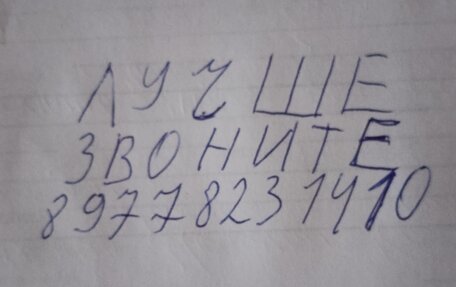 ЛУЧШЕ
ЗВОНИТЕ
89778231410